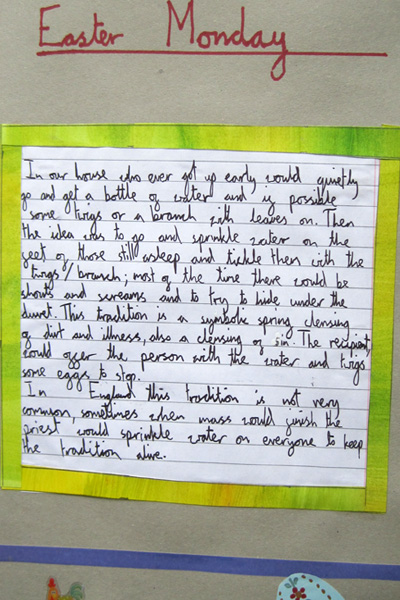 Easter Monday
In our house who ever got up early would quietly
go and get a bottle of water and if possible
some twigs or a branch with leaves on. Then
the idea was to go and sprinkle water on the
feet of those still asleep and tickle them with the
twigs/branch; most of the time there would be
shouts and screams and to try to hide under the
duvet. This tradition is a symbolic spring cleansing
of dirt and illness, also a cleansing of sin. The recipient,
would offer the person with the water and twigs
some eggs to stop.
In England this tradition is not very
common, sometimes when mass would finish the
priest would sprinkle water on everyone to keep
the tradition alive.